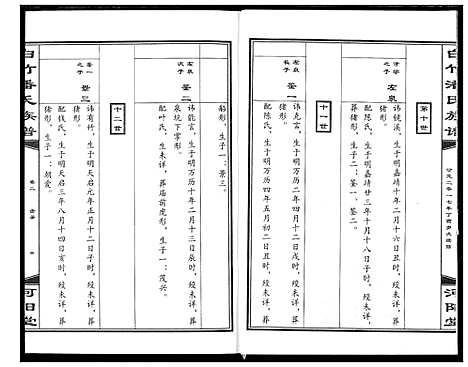 白竹潘氏族谱
公元二零一七年丁酉岁次续修
河阳堂
第十世
左泉
讳镜溪，生于明嘉靖十年十二月十六日丑时，殁未详，葬
猪形。
配陈氏，生于明嘉靖廿三年十月十八日子时，殁未详，葬
猪形。生子二：鉴一、鉴二。
十一世
左泉
长子
鉴一
讳克言，生于明万历十年二月十二日戌时，殁未详，葬
猪形。
配陈氏，生于明万历十四年五月初二日子时，殁未详，葬
船形，生子一：景三。
左泉
次子
鉴二
讳能言，生于明万历十二年二月十三日辰时，殁未详，葬
泉坑下掌形。
配叶氏，生未详，葬庙前虎形，生子一：茂兴。
十二世
鉴一
之子
景三
讳有竹，生于明天启元年正月十二日子时，殁未详，葬
猪形。
配钱氏，生于明天启三年八月十四日亥时，殁未详，葬
猪形，生子一：朝爱。
白竹潘氏族谱
卷二
河阳堂